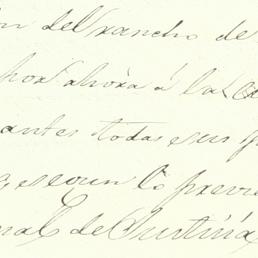 del rancho de
ahora á la
antes todas sus
segun lo previe
de Justicia